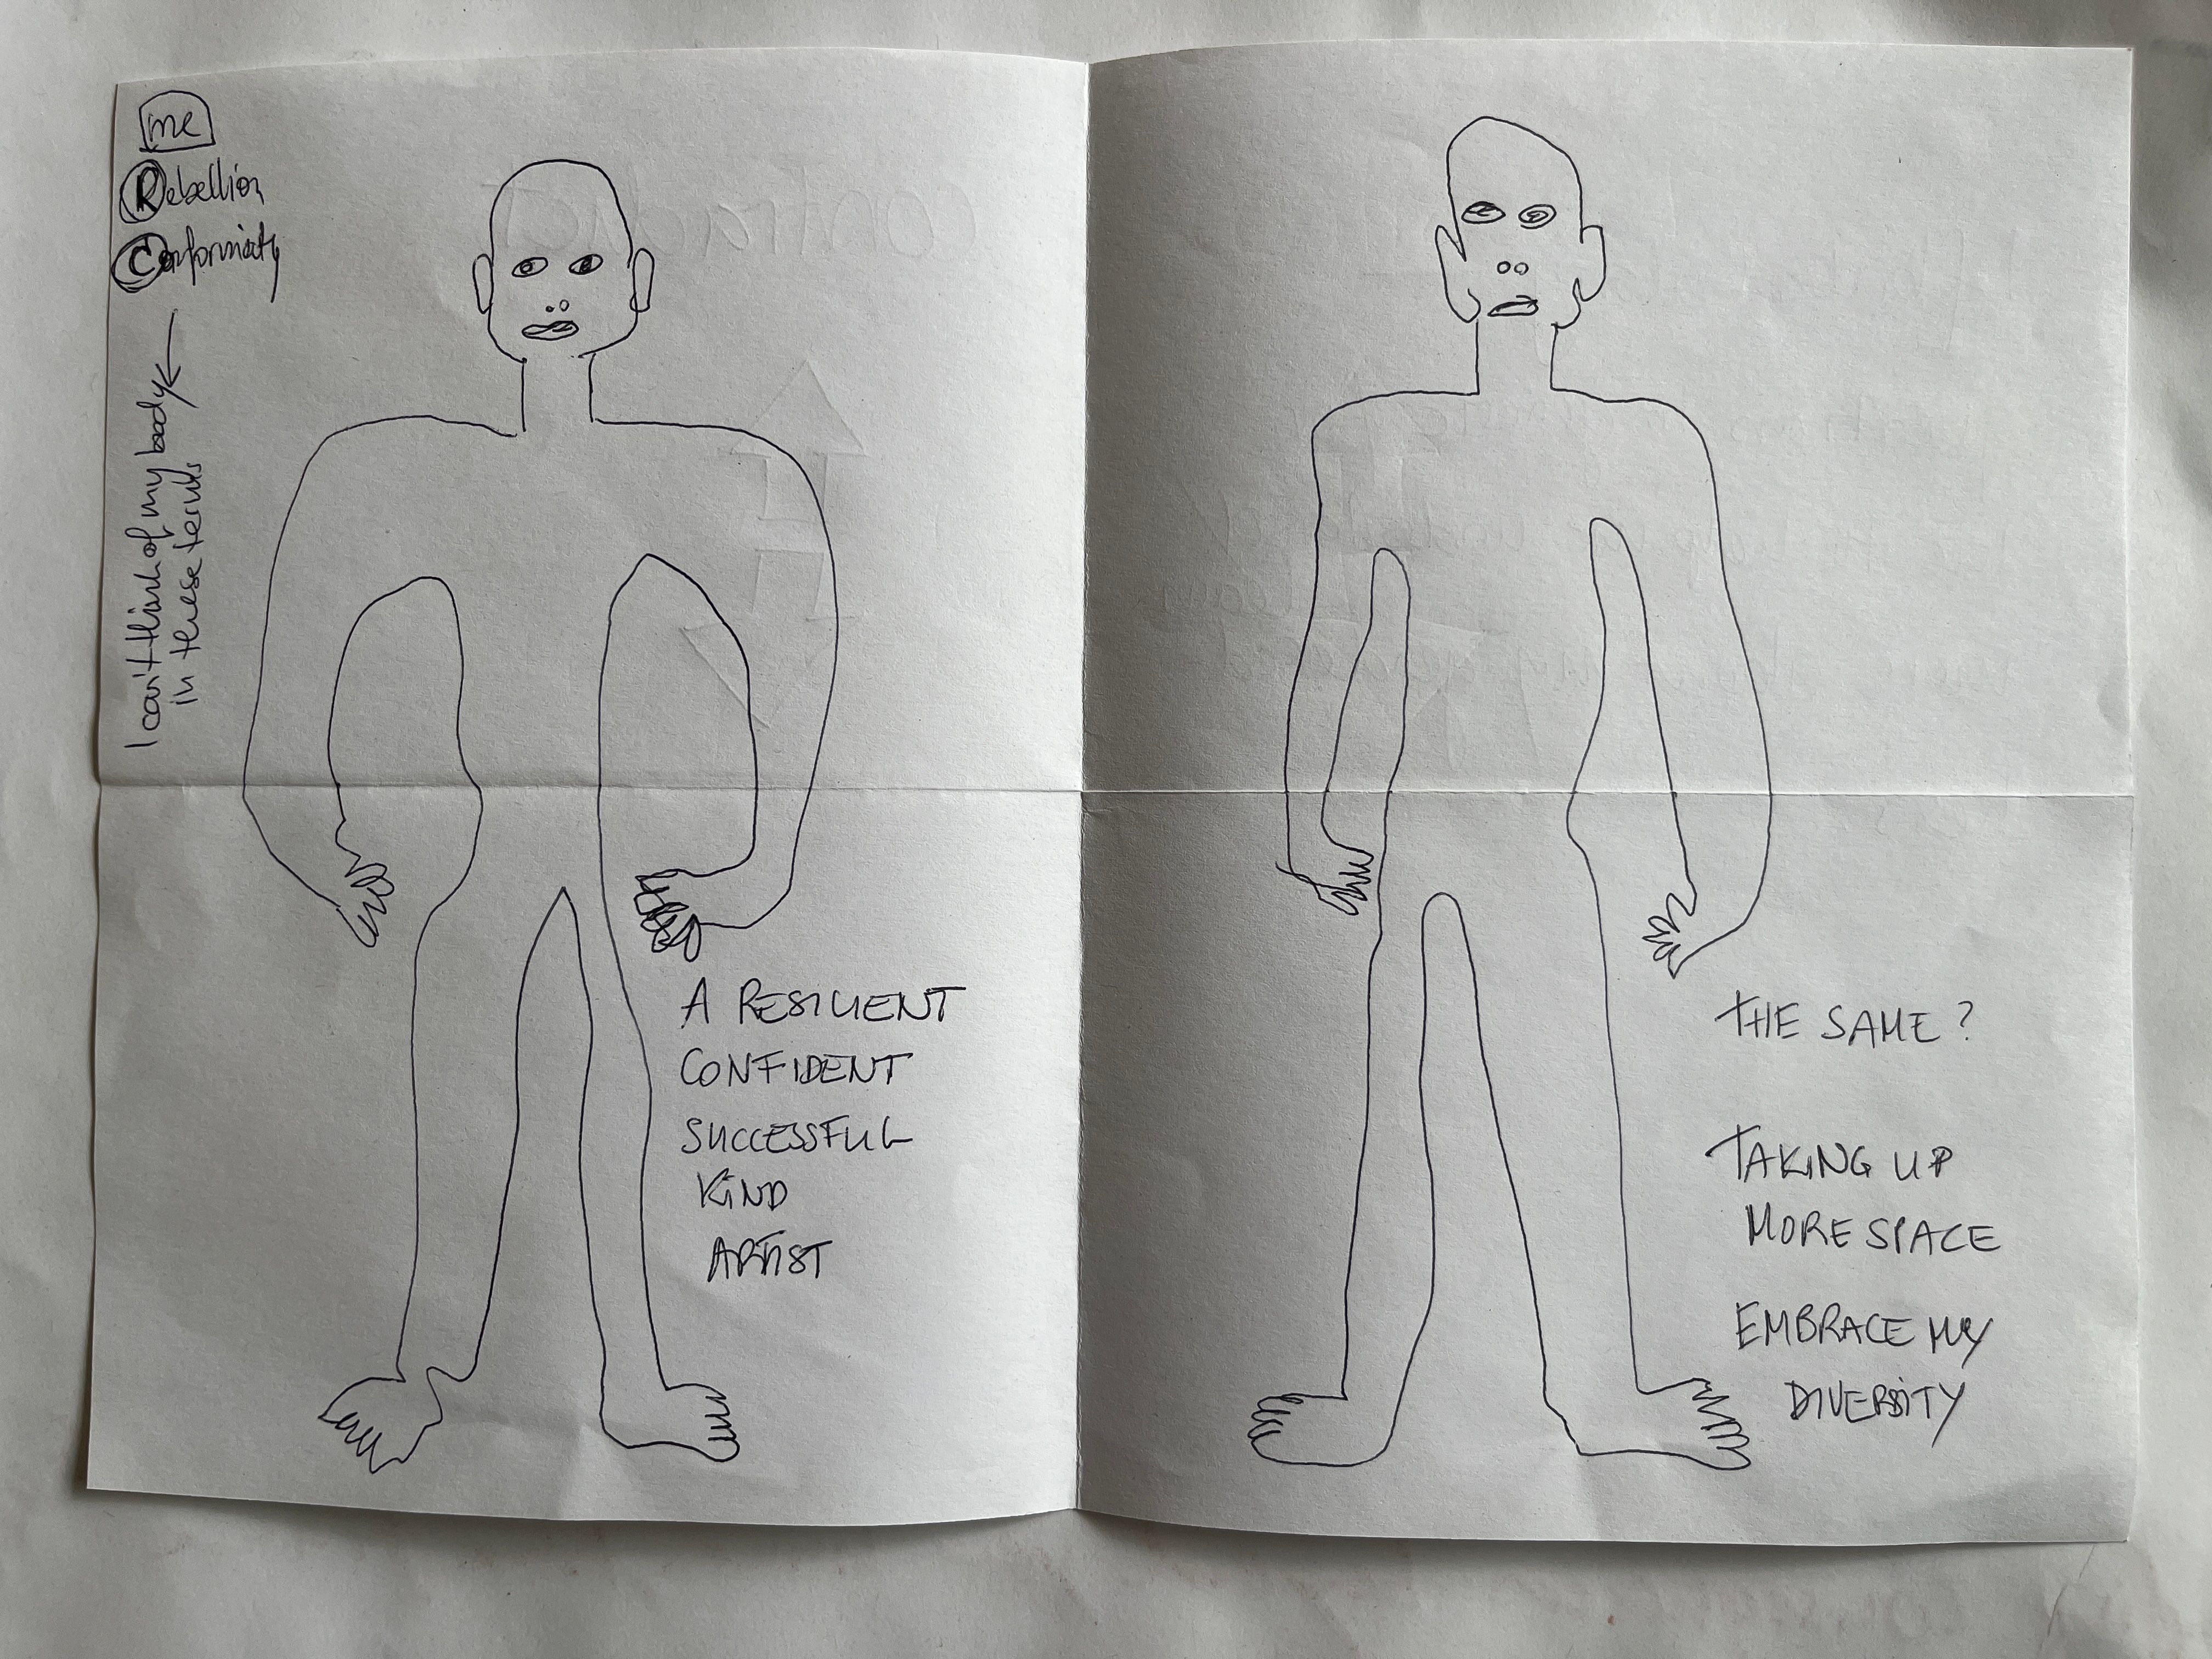 me
Rebellion
Conformisty
I can't think of my body
in these terms
A RESILIENT
CONFIDENT
SUCCESSFUL
KIND
ARTIST
THE SAME?
TAKING UP
MORE SPACE
EMBRACE MY
DIVERSITY
contradict